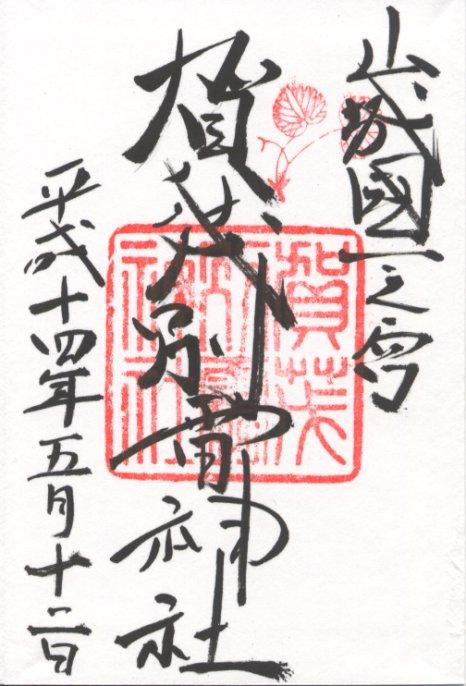 山城國一之宮
賀茂別雷神社
平成十四年五月十二日
賀茂
別雷
神社